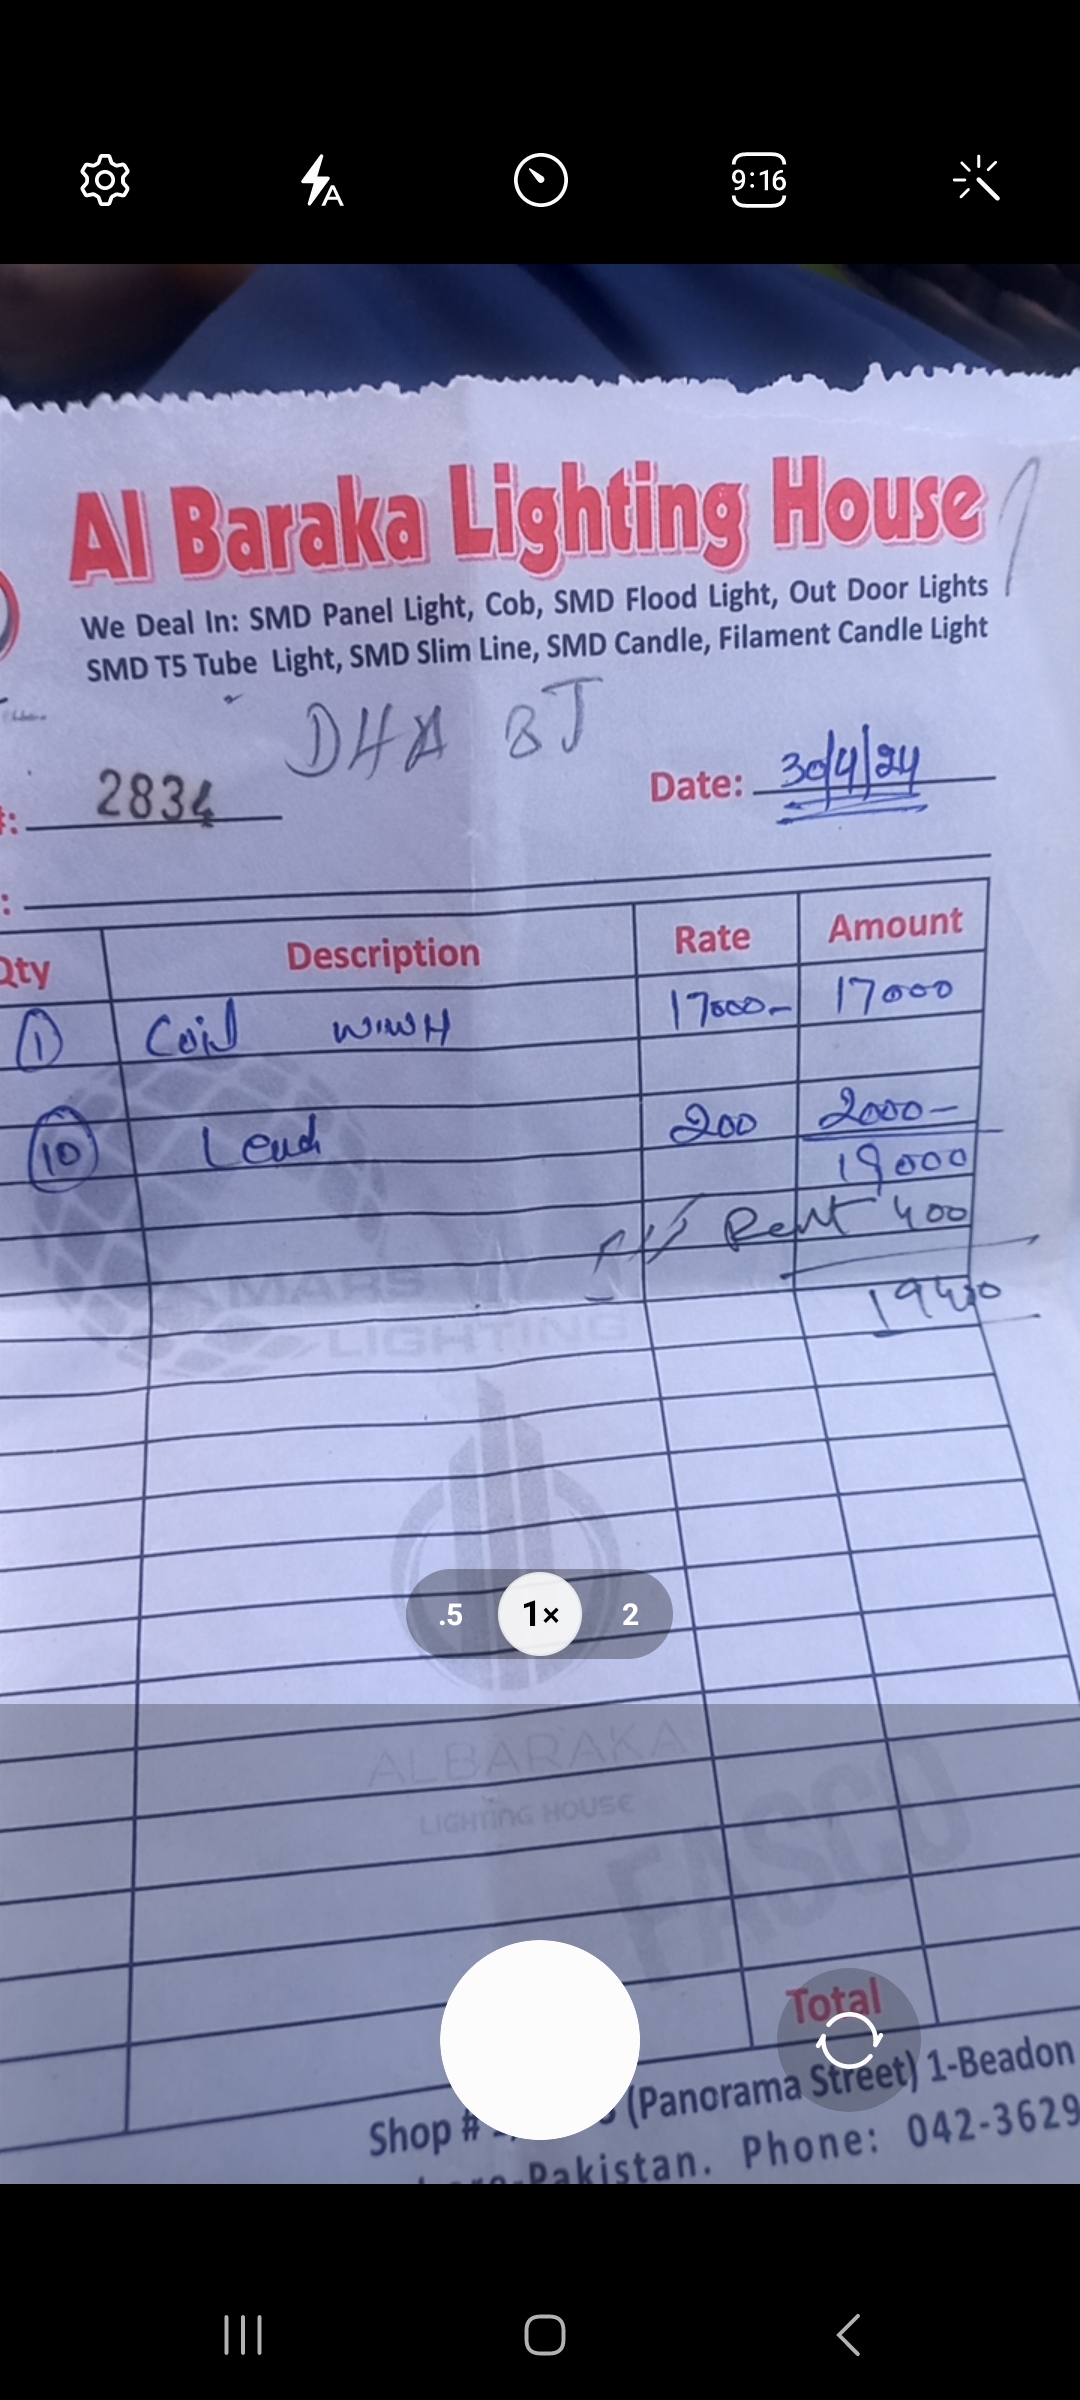 9:16
Al Baraka Lighting House
We Deal In: SMD Panel Light, Cob, SMD Flood Light, Out Door Lights
SMD T5 Tube Light, SMD Slim Line, SMD Candle, Filament Candle Light
DHA 8J
#: 2834 Date: 30/4/24
:
Qty Description Rate Amount
1 Coil W.W.H 17000- 17000
10 Lead 200 2000-
19000
Rent 400
19400
MARS
LIGHTING
.5 1× 2
ALBARAKA
LIGHTING HOUSE
FASCO
Total
Shop # (Panorama Street) 1-Beadon
Pakistan. Phone: 042-3629